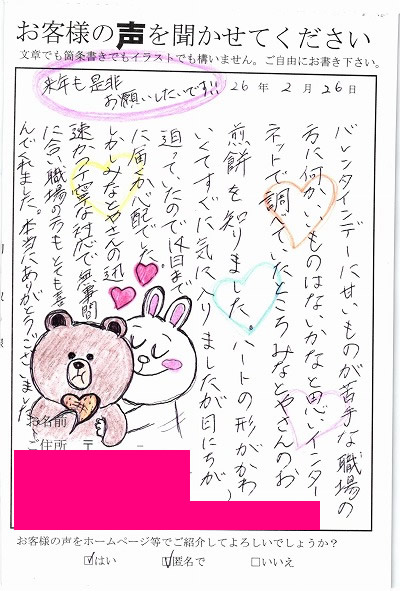 お客様の声を聞かせてください
文章でも箇条書きでもイラストでも構いません。ご自由にお書き下さい。
来年も是非
お願いしたいです!!!
26年2月26日
バレンタインデーに甘いものが苦手な職場の
方に何かいいものはないかなと思いインター
ネットで調べていたところみなとやさんのお
煎餅を知りました。ハートの形がかわ
いくてすぐに気に入りましたが日にちが
迫っていたので14日まで
に届くか心配でした。
しかしみなとやさんの迅
速かつ丁寧な対応で無事間
に合い職場の方もとても喜
んでくれました。本当にありがとうございました。
お名前
ご住所 〒 -
お客様の声をホームページ等でご紹介してよろしいでしょうか?
☑はい ☑匿名で □いいえ